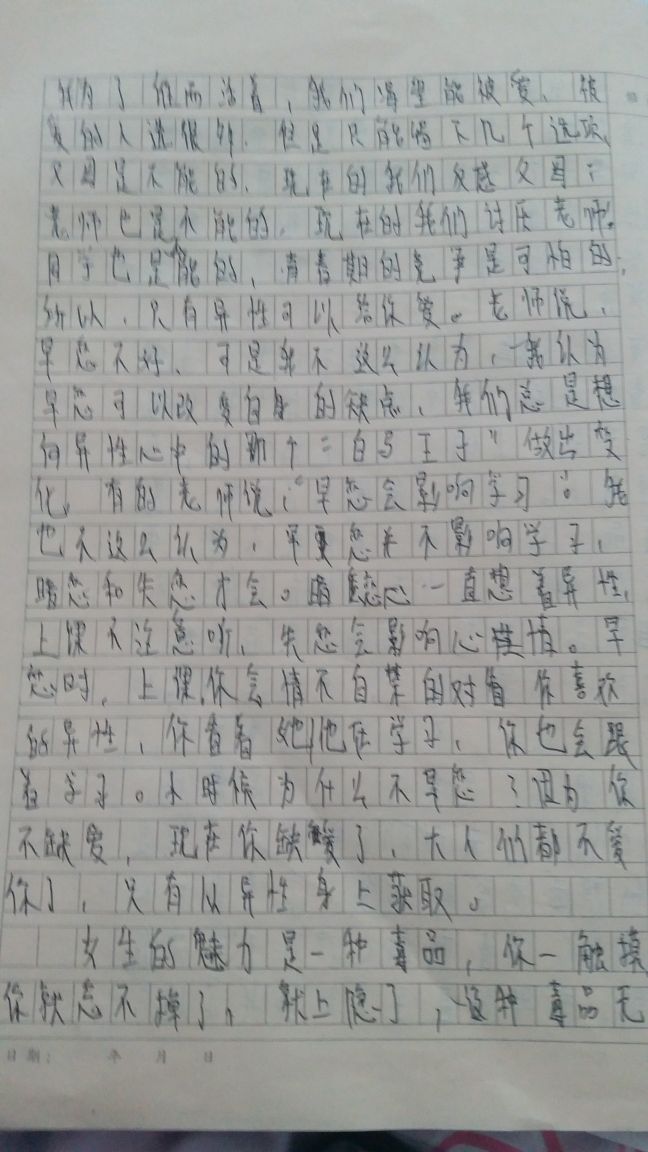 我为了他而活着，我们渴望能被爱、被
爱的人选很多，但是只能留下几个选项，
父母是不能的、现在的我们反感父母；
老师也是不能的，现在的我们讨厌老师。
同学也是不能的、青春期的竞争是可怕的；
所以，只有异性可以给你爱。老师说，
早恋不好、可是我不这么认为，我认为
早恋可以改变自身的缺点、我们总是想
向异性心中的那个"白马王子"做出变
化，有的老师说："早恋会影响学习"。我
也不这么认为，早恋并不影响学习，
暗恋和失恋才会。暗恋心一直想着异性，
上课不注意听、失恋会影响心情。早
恋时，上课，你会情不自禁的对着你喜欢
的异性，你看着她/他在学习、你也会跟
着学习。小时候为什么不早恋？因为你
不缺爱，现在你缺爱了、大人们都不爱
你了，只有从异性身上获取。
女生的魅力是一种毒品，你一触摸
你就忘不掉了，就上隐了，这种毒品无
日期： 年 月 日